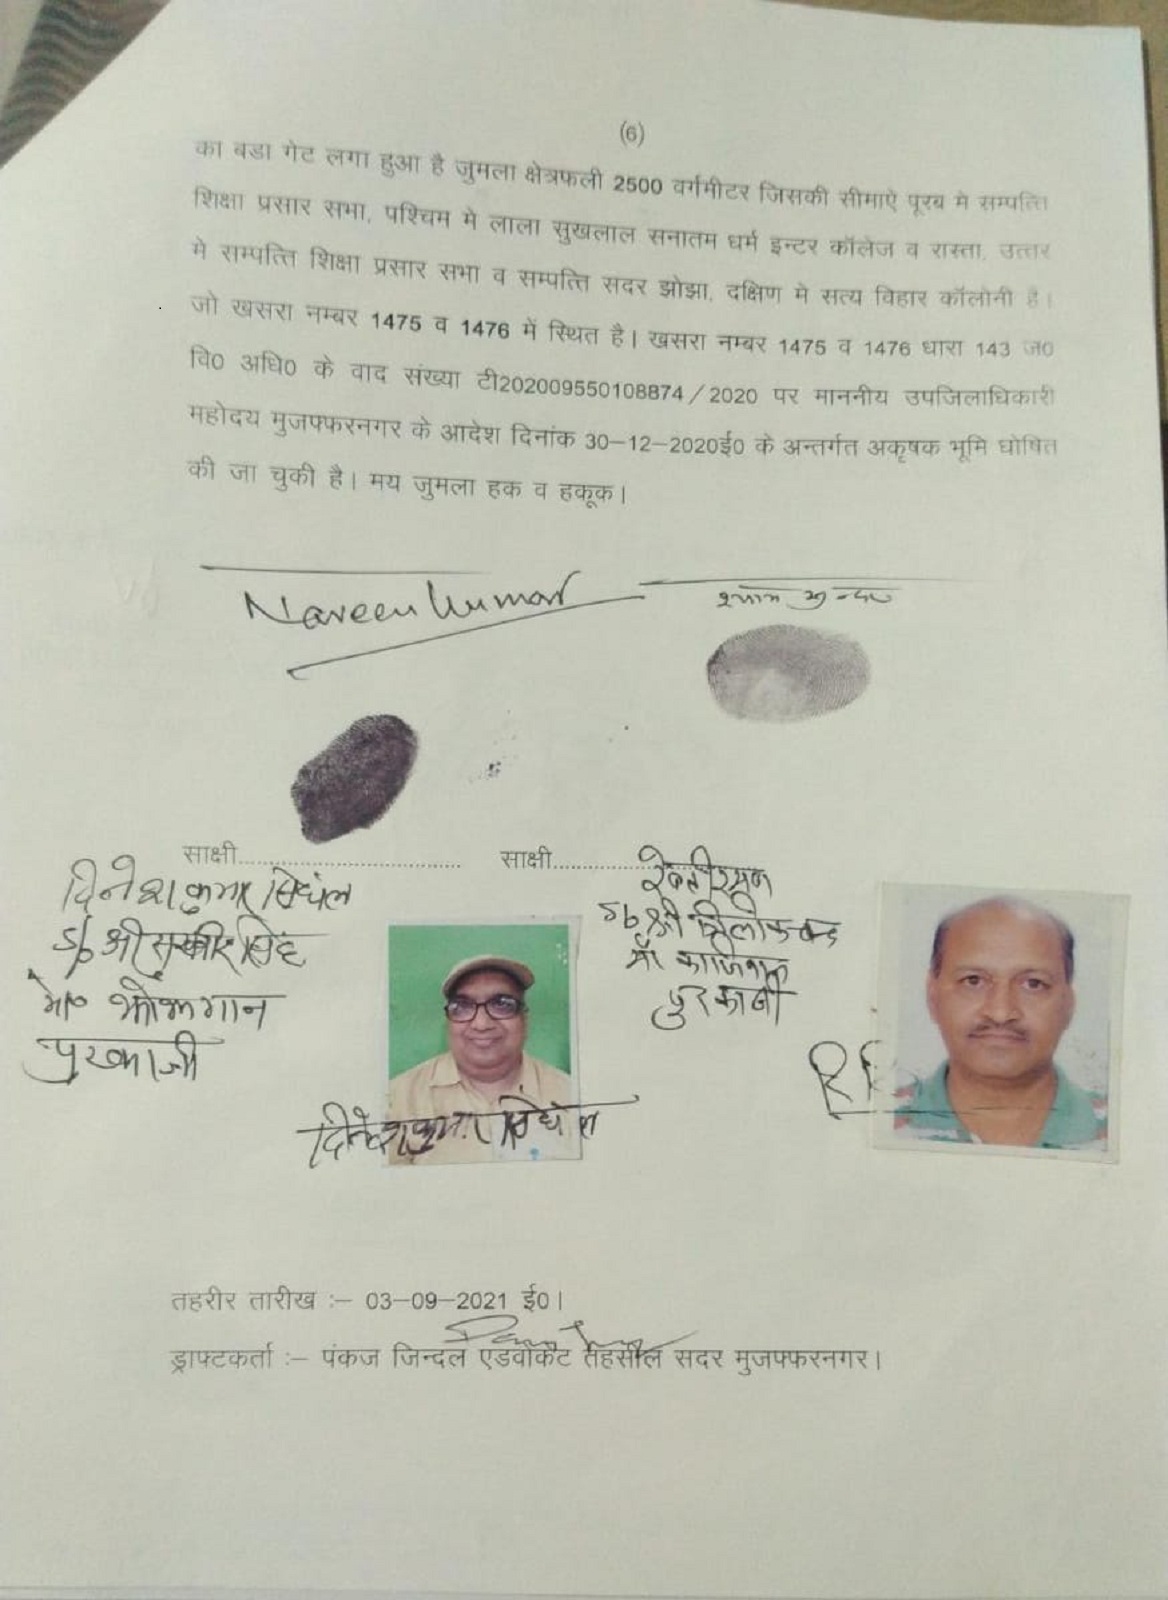 (6)
का बडा गेट लगा हुआ है जुमला क्षेत्रफली 2500 वर्गमीटर जिसकी सीमाऐ पूरब मे सम्पत्ति
शिक्षा प्रसार सभा, पश्चिम मे लाला सुखलाल सनातम धर्म इन्टर कॉलेज व रास्ता, उत्तर
मे सम्पत्ति शिक्षा प्रसार सभा व सम्पत्ति सदर झोझा, दक्षिण मे सत्य विहार कॉलोनी है।
जो खसरा नम्बर 1475 व 1476 में स्थित है। खसरा नम्बर 1475 व 1476 धारा 143 ज0
वि0 अधि0 के वाद संख्या टी202009550108874/2020 पर माननीय उपजिलाधिकारी
महोदय मुजफ्फरनगर के आदेश दिनांक 30-12-2020ई0 के अन्तर्गत अकृषक भूमि घोषित
की जा चुकी है। मय जुमला हक व हकूक।
Naveen Kumar
श्याम सुन्दर
साक्षी.......................................
दिनेश कुमार सिंघल
S/o श्री सुखवीर सिंह
मो० झोझगान
पुरकाजी
दिनेश कुमार सिंघल
साक्षी..............
रेवतीरमन
S/o श्री त्रिलोकचन्द
पुरकाजी
तहरीर तारीख :- 03-09-2021 ई0।
ड्राफ्टकर्ता :- पंकज जिन्दल एडवोकेट तहसील सदर मुजफ्फरनगर।